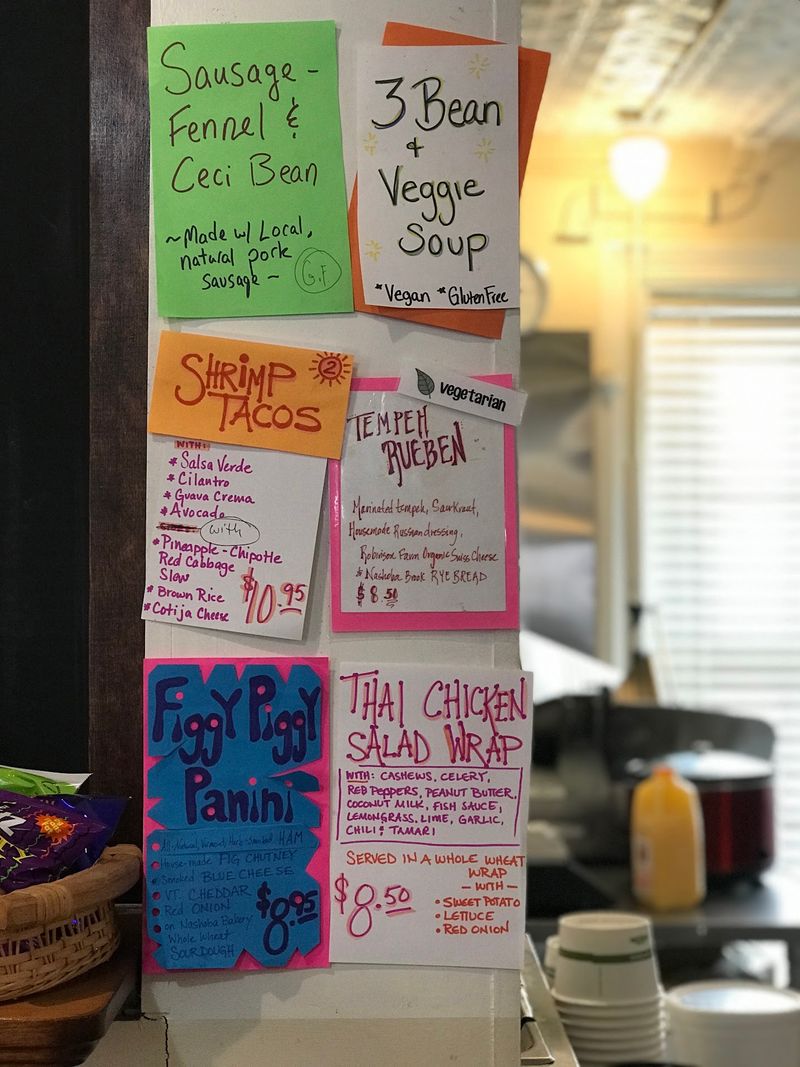 Sausage -
Fennel &
Ceci Bean
~Made w/ Local,
natural pork
sausage ~
G.F
3 Bean
+
Veggie
Soup
*Vegan *Gluten Free
SHRIMP
TACOS
2
WITH:
* Salsa Verde
* Cilantro
* Guava Crema
* Avocado
with
* Pineapple - Chipotle
Red Cabbage
Slaw
* Brown Rice
* Cotija Cheese
$10.95
vegetarian
TEMPEH
RUEBEN
Marinated tempeh, Saurkraut,
Housemade Russian dressing,
Robinson Farm Organic Swiss Cheese
* Nashoba Brook RYE BREAD
$8.50
Figgy Piggy
Panini
HAM
House-made FIG CHUTNEY
Smoked BLUE CHEESE
VT. CHEDDAR
Red ONION
on Nashoba Bakery
Whole Wheat
SOURDOUGH
$8.95
THAI CHICKEN
SALAD WRAP
WITH: CASHEWS, CELERY,
RED PEPPERS, PEANUT BUTTER,
COCONUT MILK, FISH SAUCE,
LEMONGRASS, LIME, GARLIC,
CHILI & TAMARI
SERVED IN A WHOLE WHEAT
WRAP
— WITH —
• SWEET POTATO
• LETTUCE
• RED ONION
$8.50